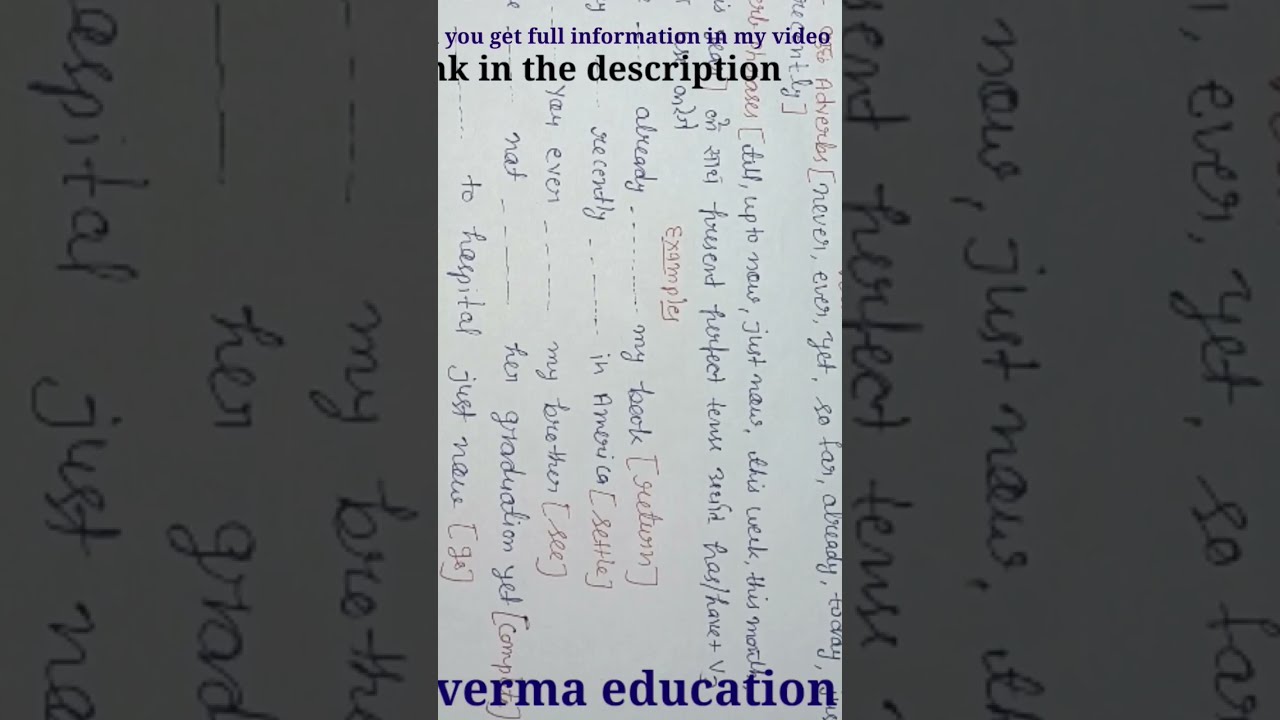 you get full information in my video
nk in the description
Adverbs [never, ever, yet, so far, already, today,
recently]
phrases [till, up to now, just now, this week, this month
के साथ present perfect tense has/have + V3
करेंगे
Examples
already ---------- my book [return]
recently ------- in America [settle]
you ever ------- my brother [see]
not ------- her graduation yet [complete]
to hospital just now [go]
verma education